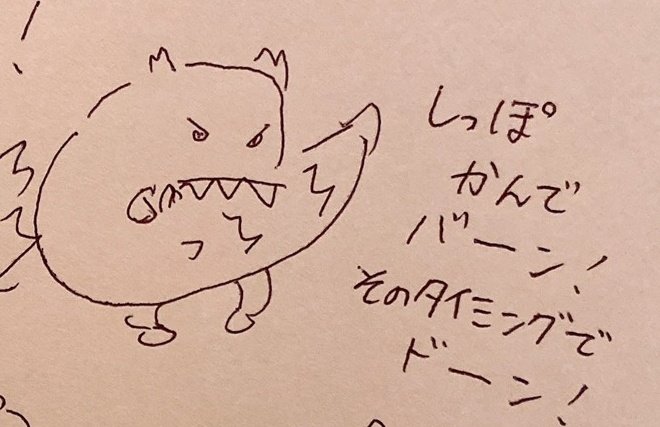 しっぽ
かんで
バーン!
そのタイミングで
ドーン!